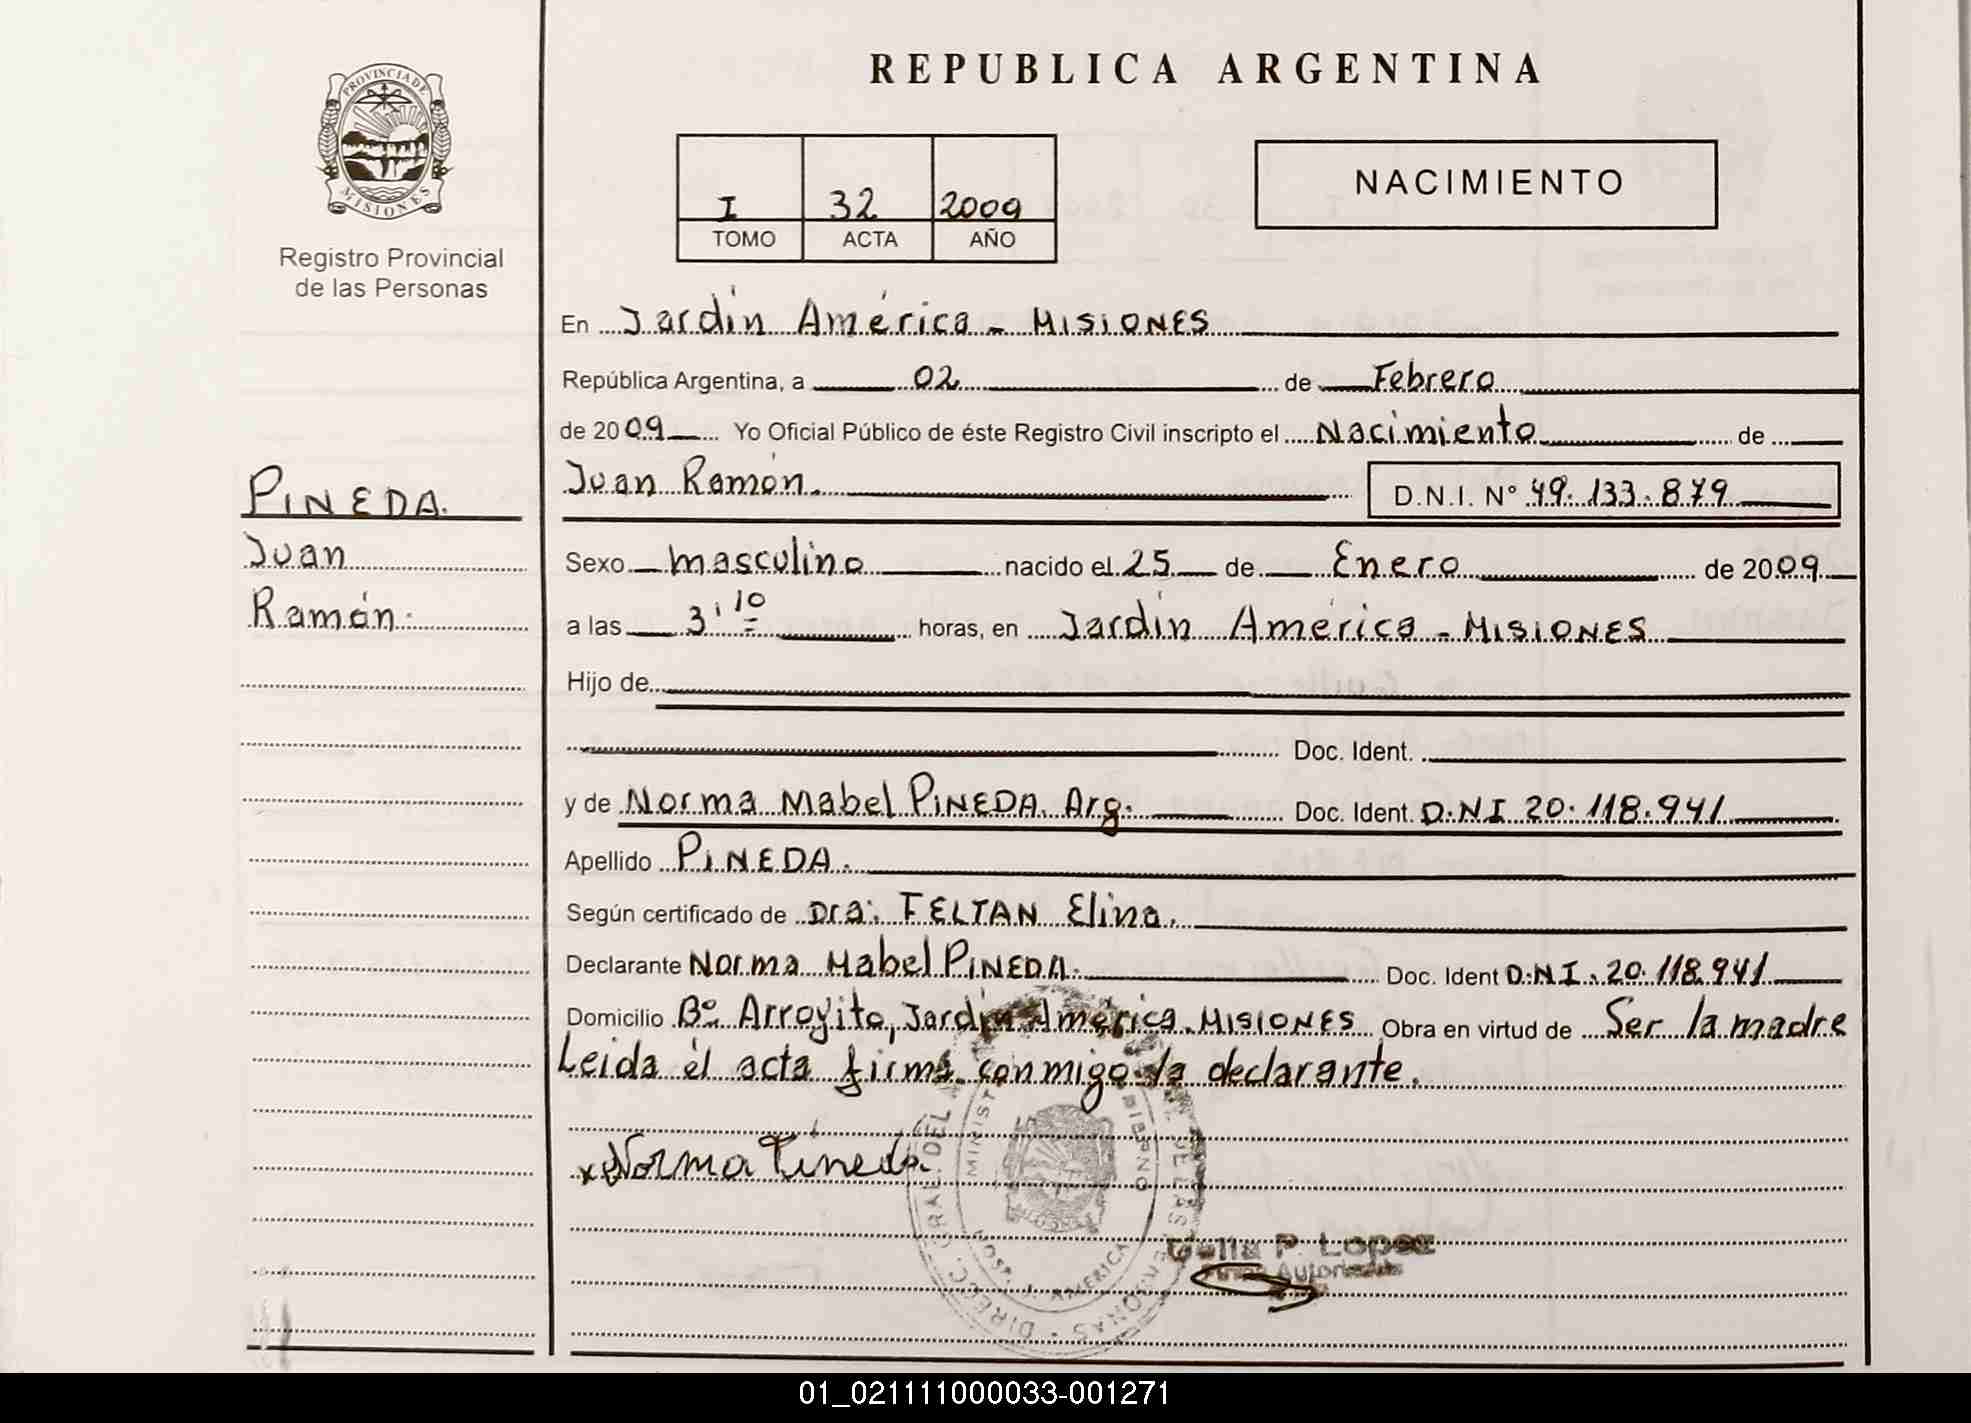 REPUBLICA ARGENTINA
PROVINCIA DE
MISIONES
Registro Provincial
de las Personas
I 32 2009
TOMO ACTA AÑO
NACIMIENTO
En Jardín América - MISIONES
República Argentina, a 02 de Febrero
de 2009 Yo Oficial Público de éste Registro Civil inscripto el Nacimiento de
Juan Ramón. D.N.I. N° 49.133.879
PINEDA.
Juan
Ramón.
Sexo masculino nacido el 25 de Enero de 2009
a las 3:10 horas, en Jardín América - MISIONES
Hijo de
Doc. Ident.
y de Norma Mabel PINEDA. Arg. Doc. Ident. D.N.I 20.118.941
Apellido PINEDA.
Según certificado de Dra: FELTAN Elina.
Declarante Norma Mabel PINEDA. Doc. Ident D.N.I. 20.118.941
Domicilio Bº Arroyito, Jardín América. MISIONES Obra en virtud de Ser la madre
Leida él acta firma conmigo la declarante.
x Norma Pineda
MINIST
HOSP. J. AMERICA
DIRECC. GRAL. DEL
P. Lopez
01_021111000033-001271